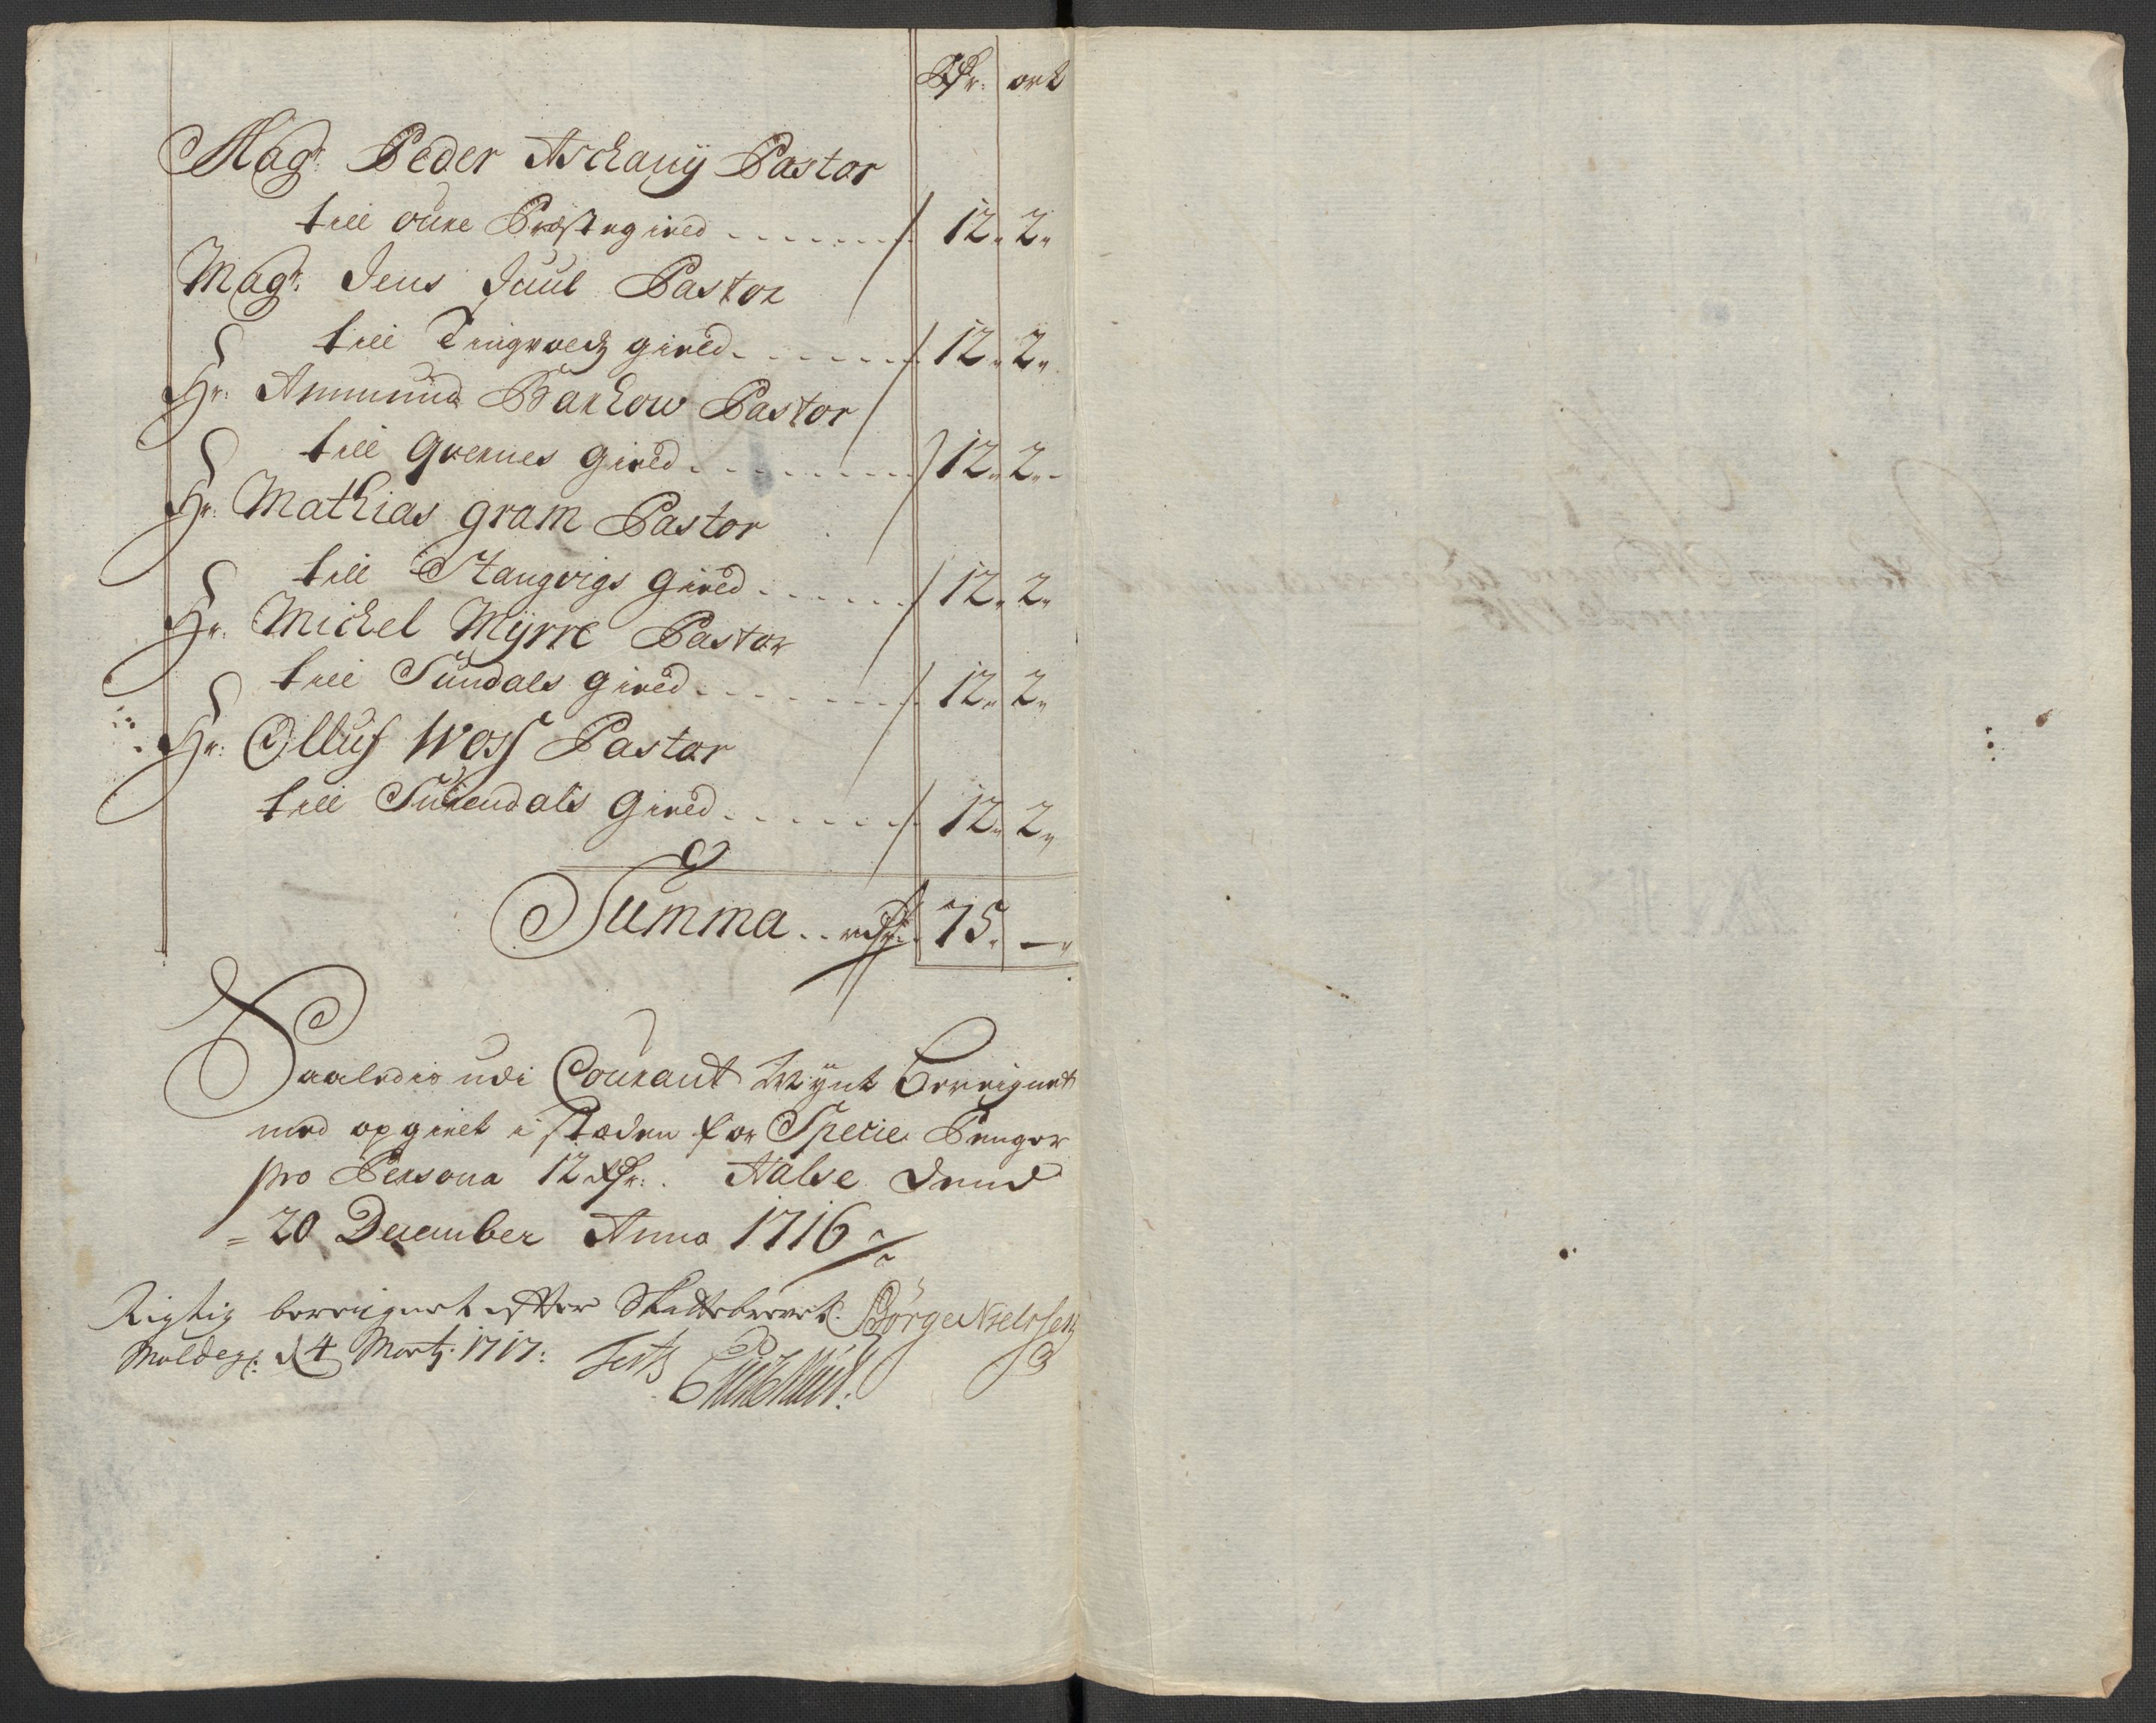 Rdr: ort
Mag: Peder Aschanÿ Pastor
till oure Præstegield 12 2
Magr. Jens Juul Pastor
till Tingvold gield 12 2
Hr: Ammund Barhow Pastor
till Qvernes gield 12 2
Hr: Mathias gram Pastor
till Stangvigs gield 12 2
Hr: Michel Mÿrre Pastor
till Sundals gield 12 2
Hr: Olluf Woss Pastor
till Surendals gield 12 2
Summa .. rdr: 75 —
Saaledis udi Courant Mÿnt berreignet
med opgield i stæden for Specie Penger
pro Persona 12 rdr: Halse dend
20 December Anno 1716
Rigtig berreignet efter Skattebrevet. Børge Nielssen
Molde d 4 Martz: 1717: